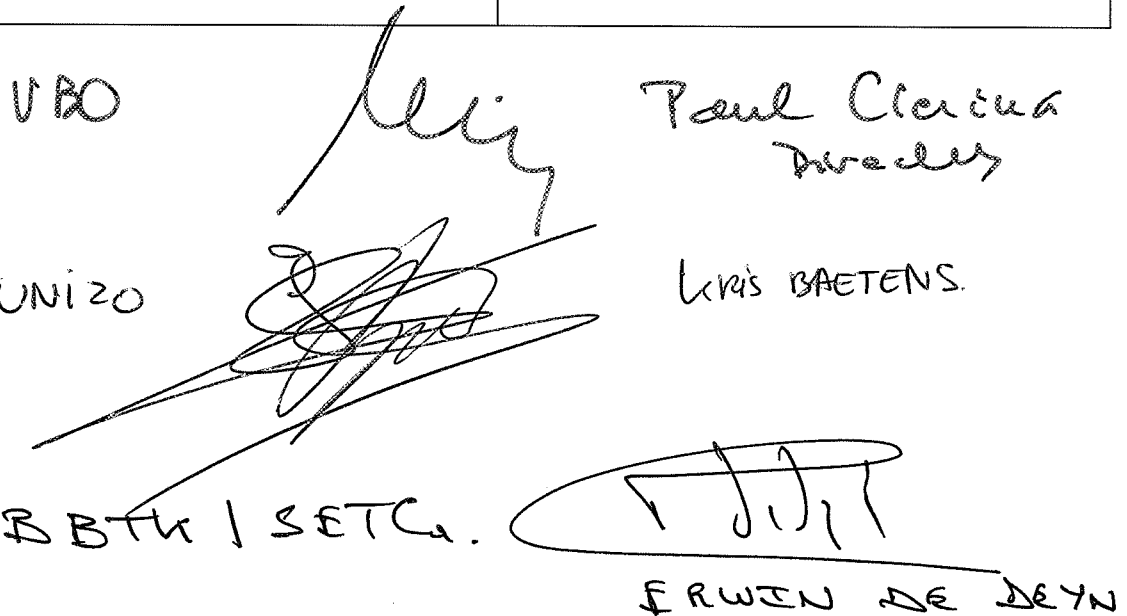 VBO Paul Clerinx
Directeur
UNIZO KRIS BAETENS.
BBTK / SETCa.
ERWIN DE DEYN